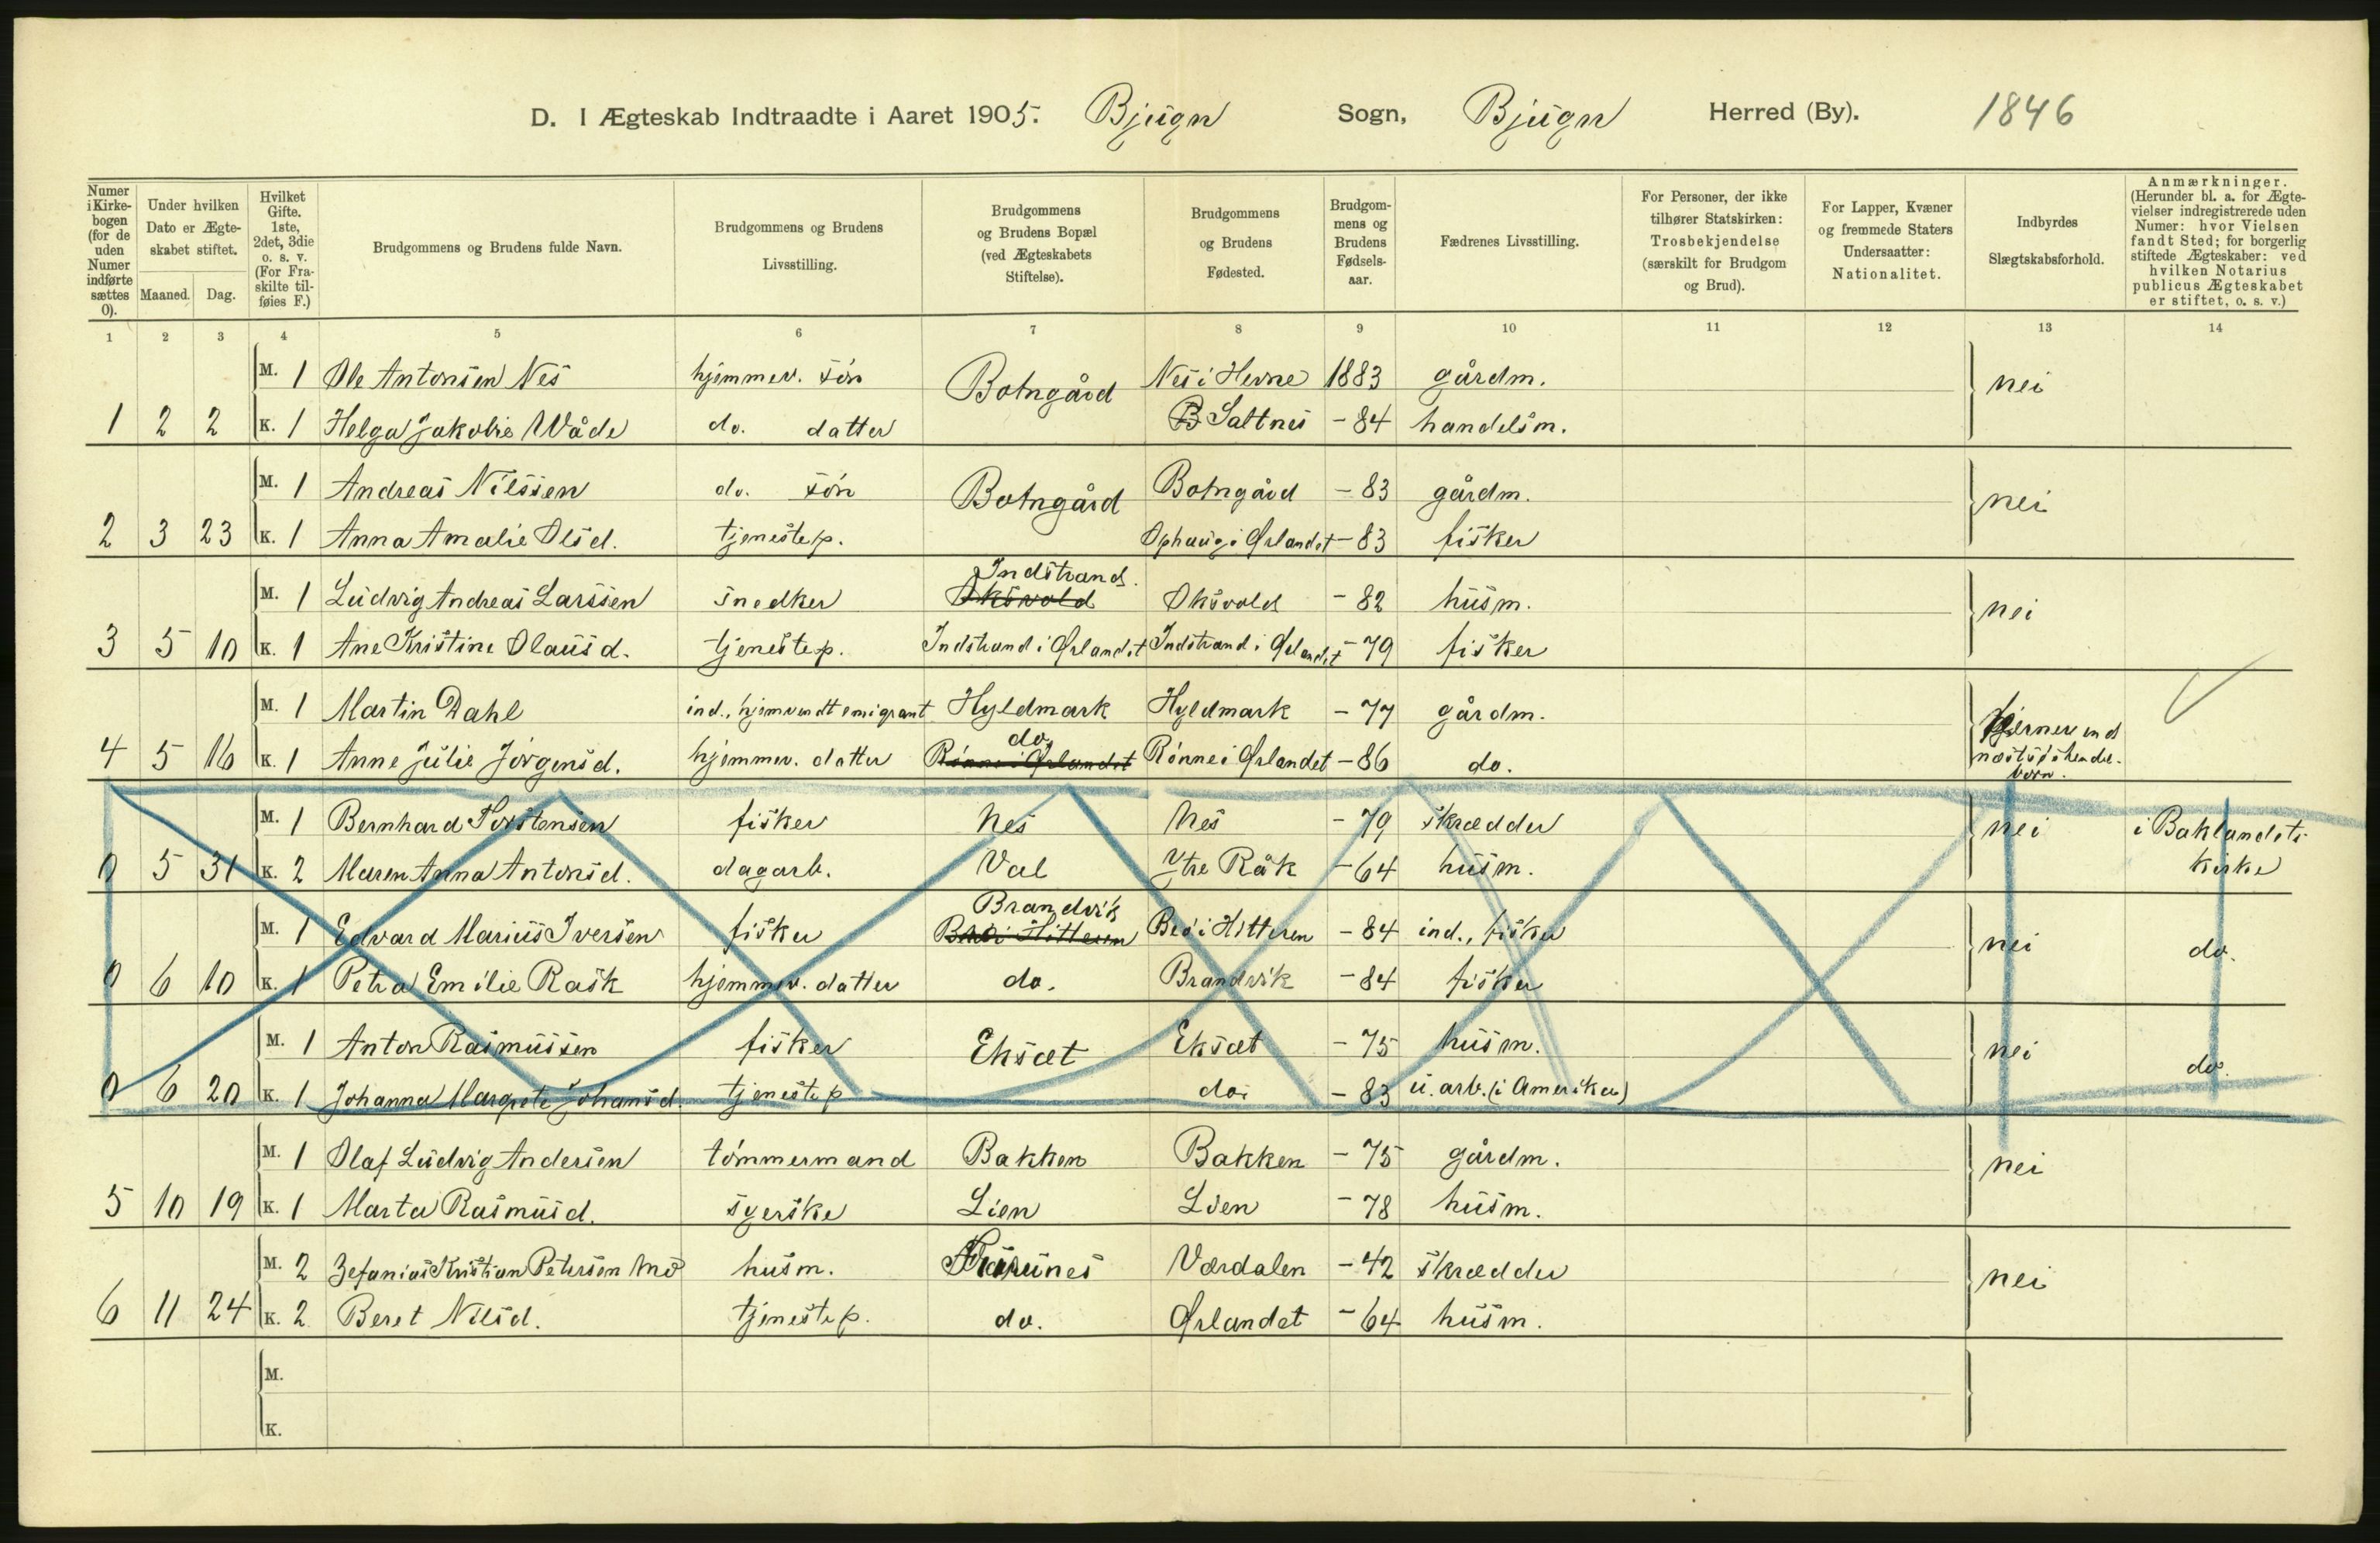 D. I Ægteskab Indtraadte i Aaret 1905. Bjugn Sogn, Bjugn Herred (By). 1846
Numer i Kirkebogen (for de uden Numer indførte sættes 0).
Under hvilken Dato er Ægteskabet stiftet.
Maaned. Dag.
Hvilket Gifte. 1ste, 2det, 3die o. s. v. (For Fraskilte tilføies F.)
Brudgommens og Brudens fulde Navn.
Brudgommens og Brudens Livsstilling.
Brudgommens og Brudens Bopæl (ved Ægteskabets Stiftelse).
Brudgommens og Brudens Fødested.
Brudgommens og Brudens Fødselsaar.
Fædrenes Livsstilling.
For Personer, der ikke tilhører Statskirken: Trosbekjendelse (særskilt for Brudgom og Brud).
For Lapper, Kvæner og fremmede Staters Undersaatter: Nationalitet.
Indbyrdes Slægtskabsforhold.
Anmærkninger. (Herunder bl. a. for Ægtevielser indregistrerede uden Numer: hvor Vielsen fandt Sted; for borgerlig stiftede Ægteskaber: ved hvilken Notarius publicus Ægteskabet er stiftet, o. s. v.)
1 2 3 4 5 6 7 8 9 10 11 12 13 14
M. 1 Ole Antonsen Nes hjemmev. søn Botngård Nes i Hevne 1883 gårdm. nei
1 2 2 K. 1 Helga Jakobie Wåde do. datter B Saltnes - 84 handelsm.
M. 1 Andreas Nilssen do. søn Botngård Botngård - 83 gårdm. nei
2 3 23 K. 1 Anna Amalie Olsd. tjenestep. Ophaug i Ørlandet - 83 fisker
M. 1 Ludvig Andreas Larssen snedker Indstrand. Oksvold Oksvold - 82 husm. nei
3 5 10 K. 1 Ane Kristine Olausd. tjenestep. Indstrand i Ørlandet Indstrand i Ørlandet - 79 fisker
M. 1 Martin Dahl ind., hjemvendt emigrant Hyldmark Hyldmark - 77 gårdm. fjernere end næstsøskendebørn.
4 5 16 K. 1 Anne Julie Jørgensd. hjemmev. datter do. Rønne i Ørlandet Rønne i Ørlandet - 86 do.
M. 1 Bernhard Torstensen fisker Nes Nes - 79 skrædder nei i Baklandets kirke
0 5 31 K. 2 Maren Anna Antonsd. dagarb. Val Ytre Råk - 64 husm.
M. 1 Edvard Marius Iversen fisker Brandvik Bes i Hitteren Bes i Hitteren - 84 ind., fisker nei do.
0 6 10 K. 1 Petra Emilie Rask hjemmev. datter do. Brandvik - 84 fisker
M. 1 Anton Rasmussen fisker Eksæt Eksæt - 75 husm. nei do.
0 6 20 K. 1 Johanna Margrete Johansd. tjenestep do. - 83 u. arb. (i Amerika)
M. 1 Olaf Ludvig Andersen tømmermand Bakken Bakken - 75 gårdm. nei
5 10 19 K. 1 Marta Rasmusd. syerske Lien Lien - 78 husm.
M. 2 Zefanias Kristian Petersen Mo husm. Værdalen - 42 skrædder nei
6 11 24 K. 2 Beret Nilsd. tjenestep. do. Ørlandet - 64 husm.
M.
K.